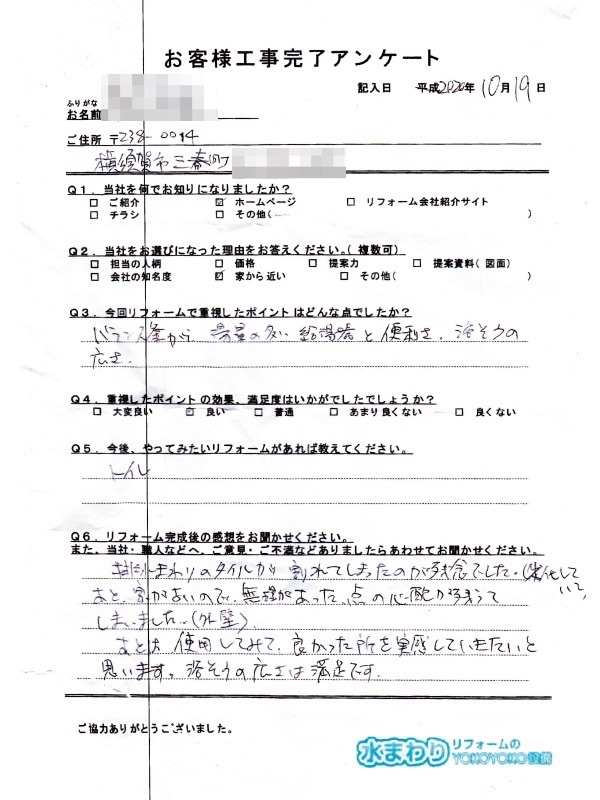 お客様工事完了アンケート
記入日 平成2020年10月19日
ふりがな
お名前
ご住所 〒238-0014
横須賀市三春町
Q1．当社を何でお知りになりましたか？
□ ご紹介 ☑ ホームページ □ リフォーム会社紹介サイト
□ チラシ □ その他( )
Q2．当社をお選びになった理由をお答えください。(複数可)
□ 担当の人柄 □ 価格 □ 提案力 □ 提案資料(図面)
□ 会社の知名度 ☑ 家から近い □ その他( )
Q3．今回リフォームで重視したポイントはどんな点でしたか？
バランス釜から 湯量の多い給湯器と便利さ、浴そうの
広さ.
Q4．重視したポイントの効果、満足度はいかがでしたでしょうか？
□ 大変良い ☑ 良い □ 普通 □ あまり良くない □ 良くない
Q5．今後、やってみたいリフォームがあれば教えてください。
トイレ
Q6．リフォーム完成後の感想をお聞かせください。
また、当社・職人などへ、ご意見・ご不満などありましたらあわせてお聞かせください。
まわりのタイルが 割れてしまったのが残念でした.(劣化して
いて)
あと、家が古いので、無理があった点の心配が残って
しまいました..(外壁)
あとは 使用してみて、良かった所を実感していきたいと
思います。浴そうの広さは満足です.
ご協力ありがとうございました。
水まわりリフォームのYOKOYOKO設備